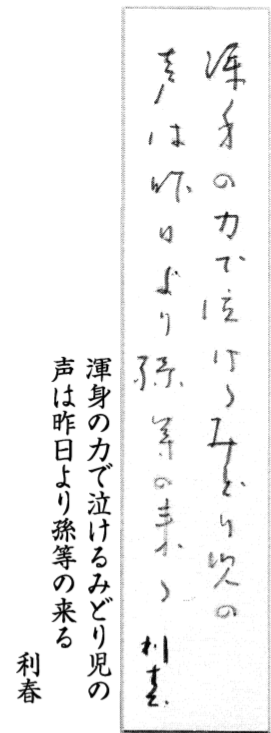 渾身の力で泣けるみどり児の
声は昨日より孫等の来る
利春
渾身の力で泣けるみどり児の
声は昨日より孫等の来る
利春